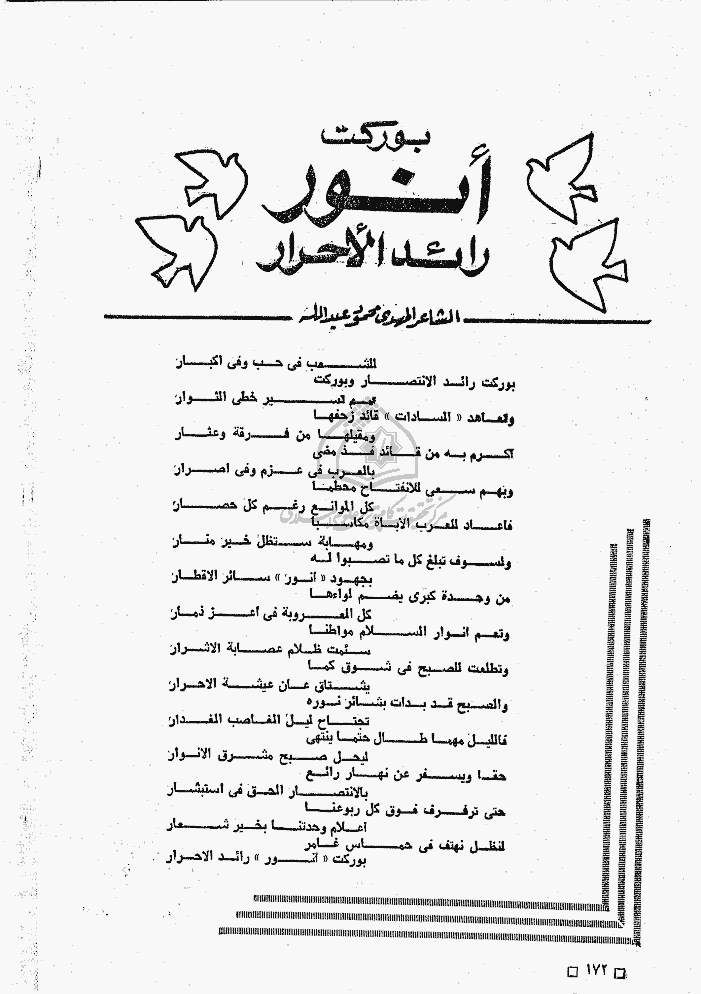 بوركت
أنور
رائد الأحرار
الشاعر المهدى محمود عبد الله
بوركت رائد الانتصار وبوركت
للشعب فى حب وفى اكبار
وتعاهد « السادات » قائد زحفها
نعم تسير خطى الثوار
اكرم به من قائد فذ مضى
ومقيلها من فرقة وعثار
وبهم سعى للانفتاح محطما
بالعرب فى عزم وفى اصرار
فاعاد للعرب الاباة مكاسبا
كل الموانع رغم كل حصار
ولسوف تبلغ كل ما تصبوا له
ومهابة ستظل خير منار
من وحدة كبرى يضم لواءها
بجهود « انور » سائر الاقطار
وتعم انوار السلام مواطنا
كل العروبة فى أعز ذمار
وتطلعت للصبح فى شوق كما
سئمت ظلام عصابة الاشرار
والصبح قد بدات بشائر نوره
يشتاق عان عيشة الاحرار
فالليل مهما طال حتما ينتهى
تجتاح ليل الغاصب الغدار
حقا ويسفر عن نهار رائع
ليحل صبح مشرق الانوار
حتى ترفرف فوق كل ربوعنا
بالانتصار الحق فى استبشار
لنظل نهتف فى حماس غامر
اعلام وحدتنا بخير شعار
بوركت « انور » رائد الاحرار
١٧٢